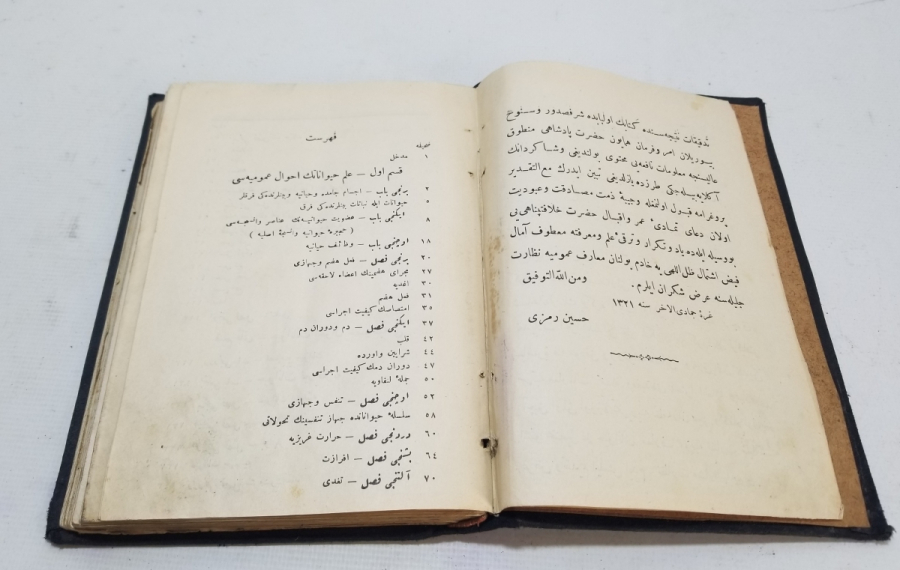 تدقیقات نتیجه‌سنده کتابك اولبابده شرفصدور وسنوح
بیوریلان امر وفرمان همایون حضرت پادشاهی منطوق
عالیسنجه معلومات نافعه‌یی محتوی بولندیغی وشاکردانك
آکلایه‌بیله‌جکی طرزده یازلدیغی تبین ایدرك مع التقدیر
پروغرامه قبول اولنمغله وجیبهٔ ذمت مصادقت وعبودیت
اولان دعای تمادیٔ عمر واقبال حضرت خلافتپناهی‌یی
بووسیله ایله‌ده یاد وتکرار وترقیٔ علم ومعرفته معطوف آمال
فیض اشتمال ظل اللهی‌یه خادم بولنان معارف عمومیه نظارت
جلیله‌سنه عرض شکران ایلرم. ومن الله التوفیق
غرهٔ جمادی الاخر سنه ۱۳۲۱
حسین رمزی
فهرست
صحیفه
۱ مدخل
قسم اول — علم حیواناتك احوال عمومیه‌سی
۲ برنجی باب — اجسام جامده وحیاتیه وبینلرنده‌کی فرقلر
۵ حیوانات ایله نباتات بینلرنده‌کی فرق
۸ ایکنجی باب — عضویت حیوانیه‌نك عناصر وانسجه‌سی
( حجیرهٔ حیوانیه وانسجهٔ اصلیه )
۱۸ اوچنجی باب — وظائف حیاتیه
۲۰ برنجی فصل — فعل هضم وجهازی
۲۷ مجرای هضمینك اعضاء لاحقه‌سی
۳۰ اغدیه
۳۱ فعل هضم
۳۵ امتصاصك کیفیت اجراسی
۳۷ ایکنجی فصل — دم ودوران دم
۴۲ قلب
۴۴ شرایین واورده
۴۷ دوران دمك کیفیت اجراسی
۵۰ جملهٔ لنفاویه
۵۲ اوچنجی فصل — تنفس وجهازی
۵۸ سلسلهٔ حیواناتده جهاز تنفسینك تحولاتی
۶۰ دردنجی فصل — حرارت غریزیه
۶۴ بشنجی فصل — افرازات
۷۰ آلتنجی فصل — تغدی